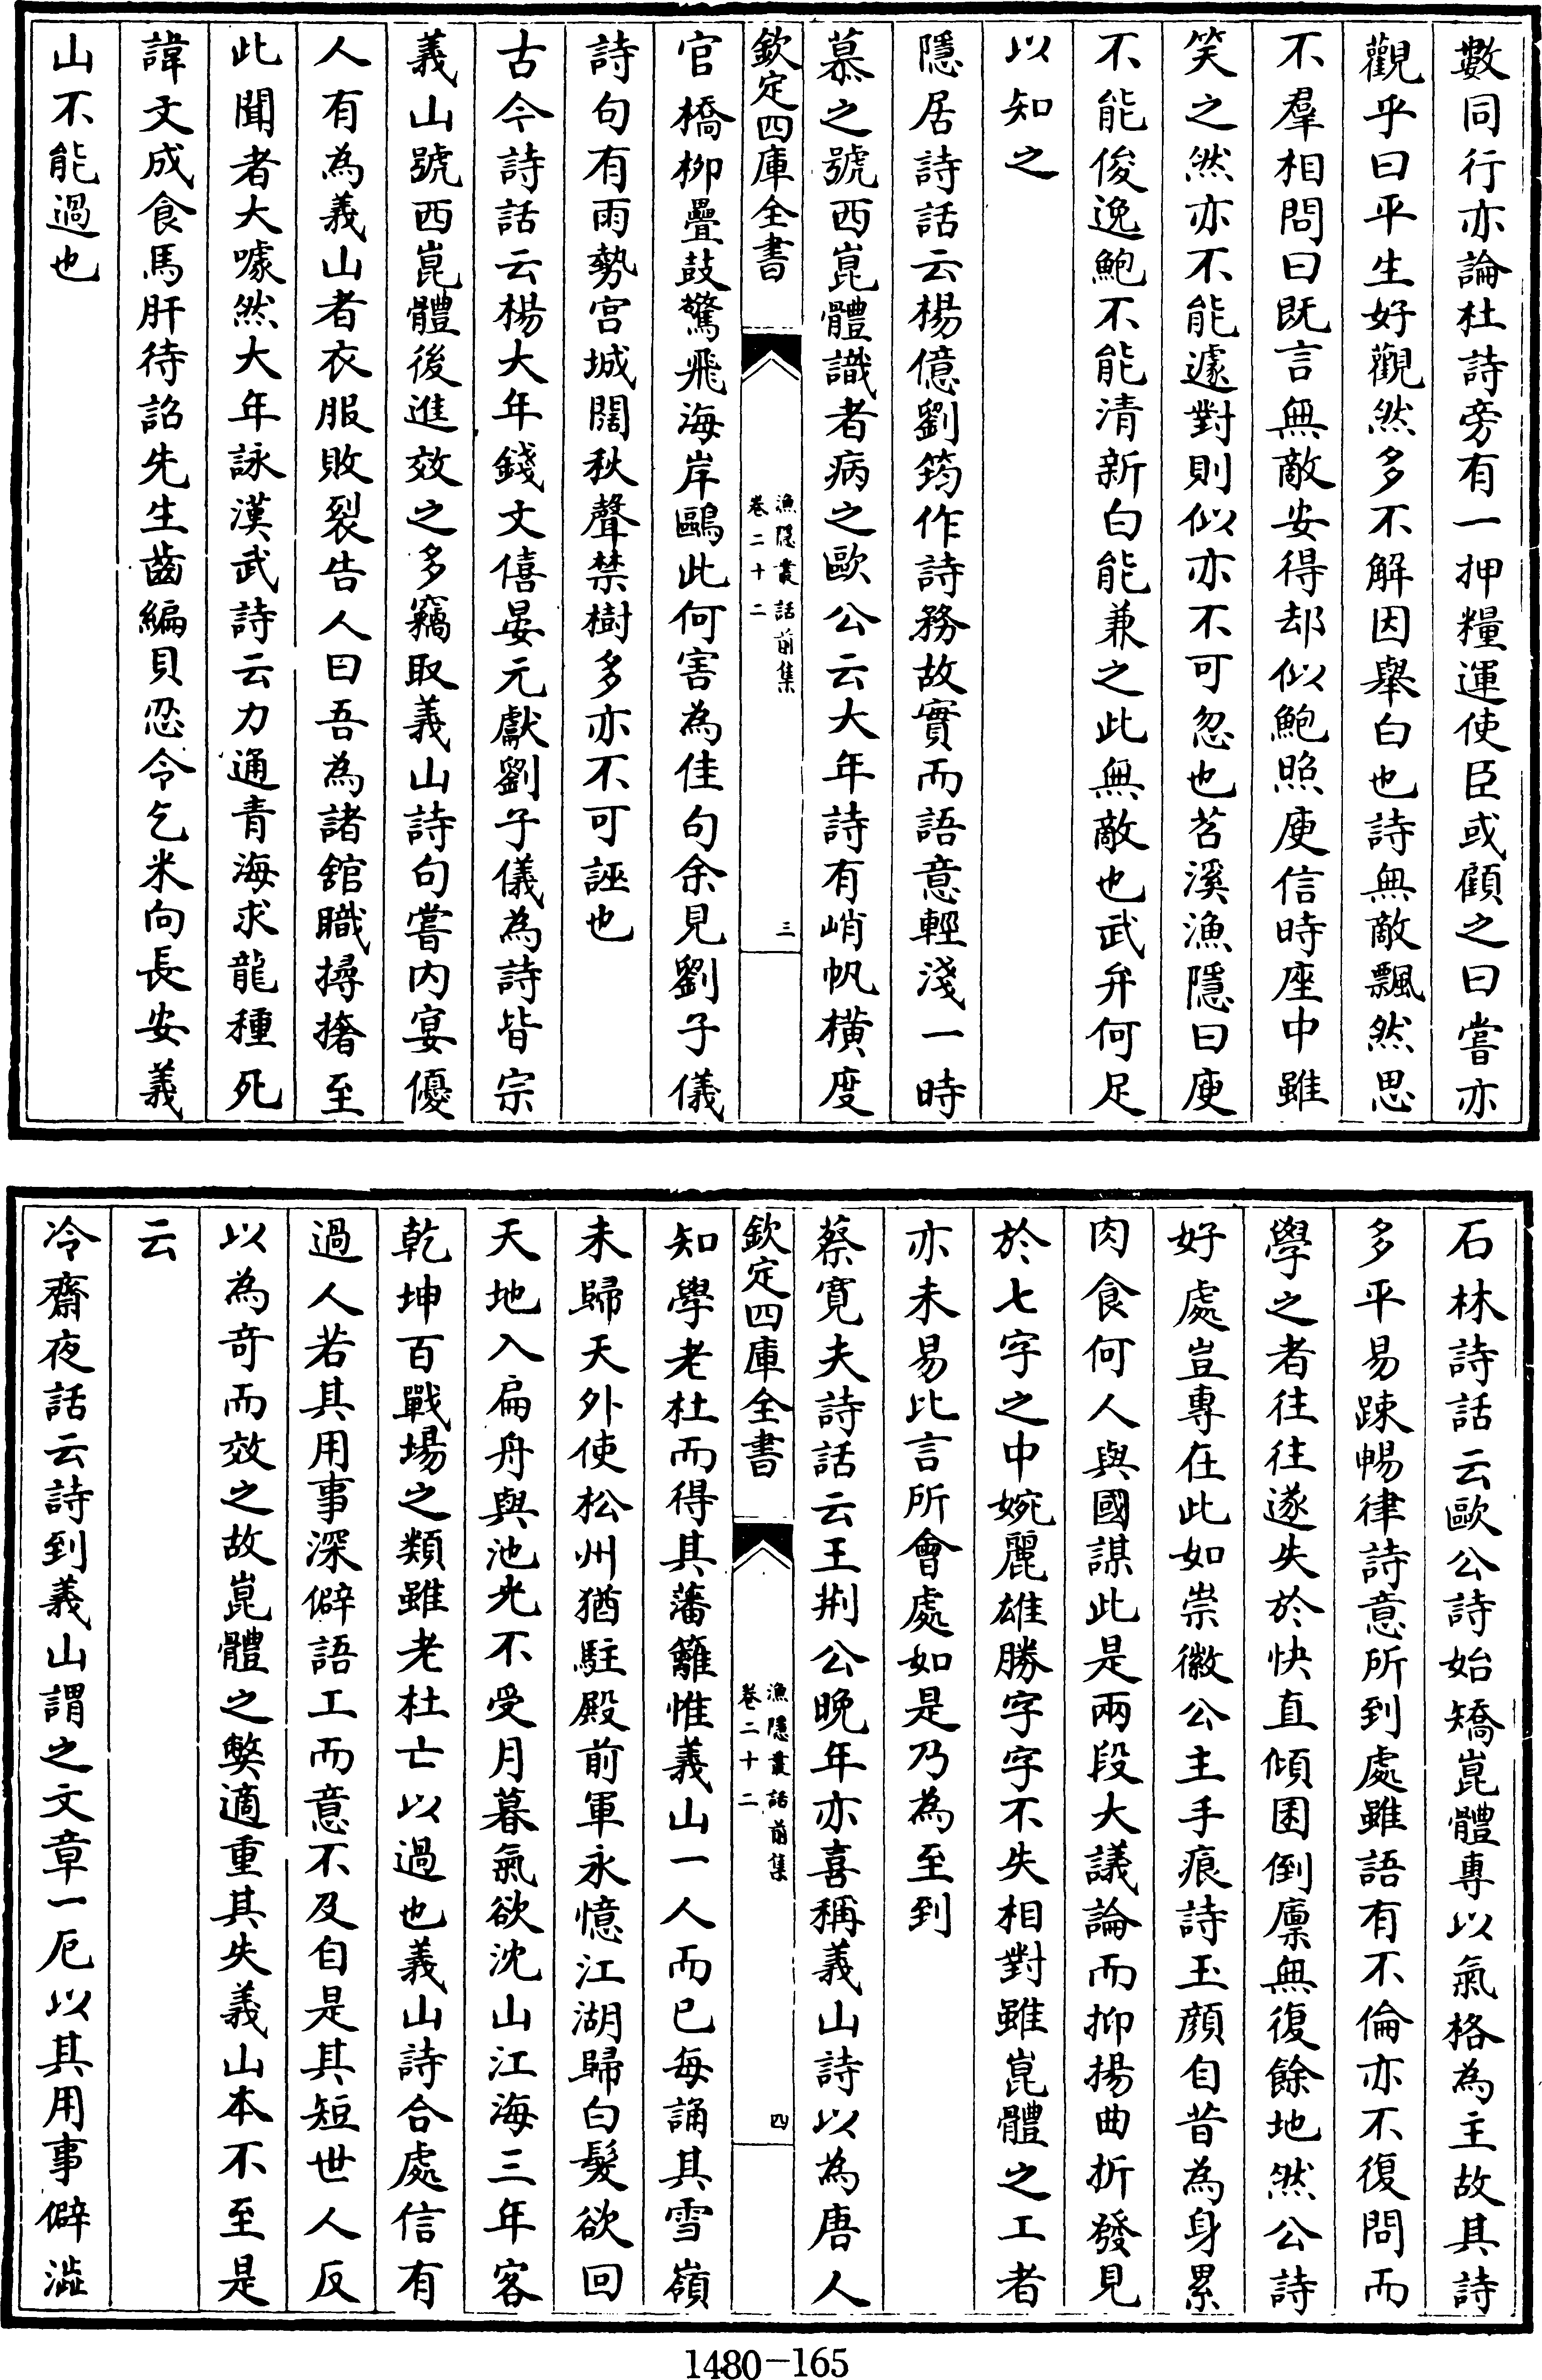 數同行亦論杜詩旁有一押糧運使臣或顧之曰嘗亦
觀乎曰平生好觀然多不解因舉白也詩無敵飄然思
不羣相問曰既言無敵安得却似鮑照庾信時座中雖
笑之然亦不能遽對則似亦不可忽也苕溪漁隱曰庾
不能俊逸鮑不能清新白能兼之此無敵也武弁何足
以知之
隱居詩話云楊億劉筠作詩務故實而語意輕淺一時
慕之號西崑體識者病之歐公云大年詩有峭帆橫度
欽定四庫全書
漁隱叢話前集
卷二十二
三
官橋栁疊鼓驚飛海岸鷗此何害為佳句余見劉子儀
詩句有雨勢宫城闊秋聲禁樹多亦不可誣也
古今詩話云楊大年錢文僖晏元獻劉子儀為詩皆宗
義山號西崑體後進效之多竊取義山詩句嘗内宴優
人有為義山者衣服敗裂告人曰吾為諸舘職撏撦至
此聞者大噱然大年詠漢武詩云力通青海求龍種死
諱文成食馬肝待詔先生齒編貝忍令乞米向長安義
山不能過也
石林詩話云歐公詩始矯崑體專以氣格為主故其詩
多平易踈暢律詩意所到處雖語有不倫亦不復問而
學之者往往遂失於快直傾囷倒廩無復餘地然公詩
好處豈專在此如崇徽公主手痕詩玉顔自昔為身累
肉食何人與國謀此是兩段大議論而抑揚曲折發見
於七字之中婉麗雄勝字字不失相對雖崑體之工者
亦未易比言所會處如是乃為至到
蔡寛夫詩話云王荆公晚年亦喜稱義山詩以為唐人
欽定四庫全書
漁隱叢話前集
卷二十二
四
知學老杜而得其藩籬惟義山一人而已每誦其雪嶺
未歸天外使松州猶駐殿前軍永憶江湖歸白髮欲回
天地入扁舟與池光不受月暮氣欲沈山江海三年客
乾坤百戰場之類雖老杜亡以過也義山詩合處信有
過人若其用事深僻語工而意不及自是其短世人反
以為奇而效之故崑體之弊適重其失義山本不至是
云
冷齋夜話云詩到義山謂之文章一厄以其用事僻澁
1480-165